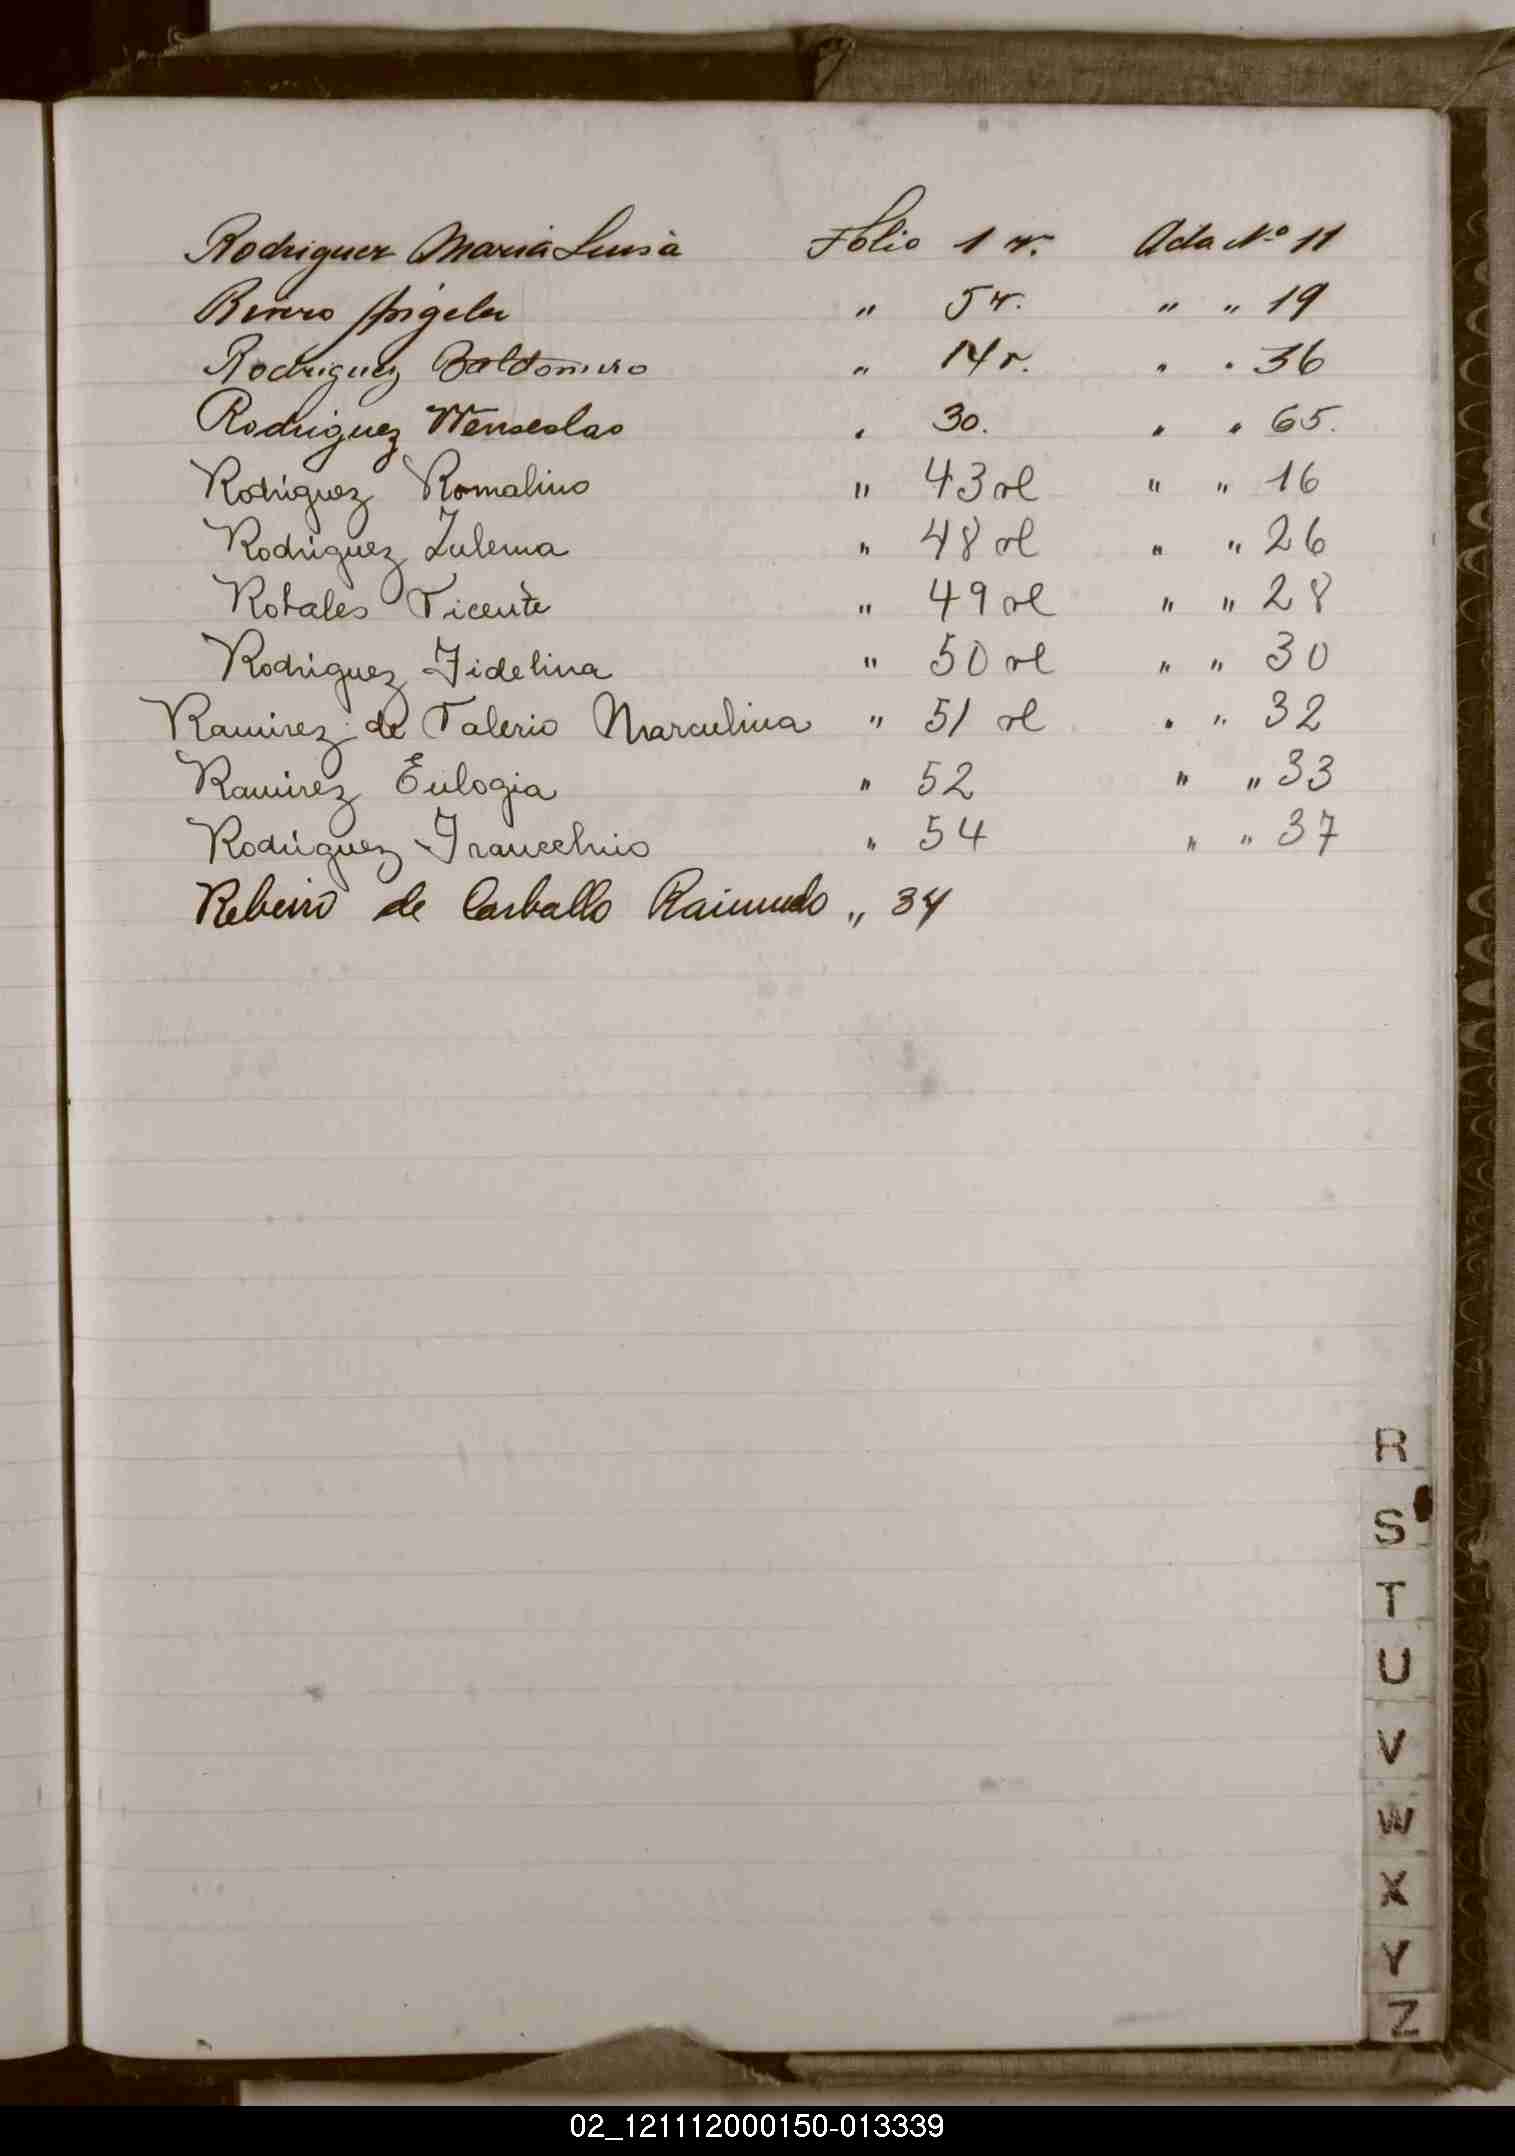 Rodriguez Maria Luisa Folio 1 v. Acta Nº 11
Rivero Angela " 5 v. " " 19
Rodriguez Baldomero " 14 v. " " 36
Rodriguez Wenseslao " 30. " " 65.
Rodríguez Romalino " 43 vl " " 16
Rodríguez Zulema " 48 vl " " 26
Rotales Vicente " 49 vl " " 28
Rodríguez Fidelina " 50 vl " " 30
Ramirez de Valerio Marculina " 51 vl " " 32
Ramirez Eulogia " 52 " " 33
Rodríguez " 54 " " 37
Rebeiro de Carballo Raimundo " 34
R
S
T
U
V
W
X
Y
Z
02_121112000150-013339